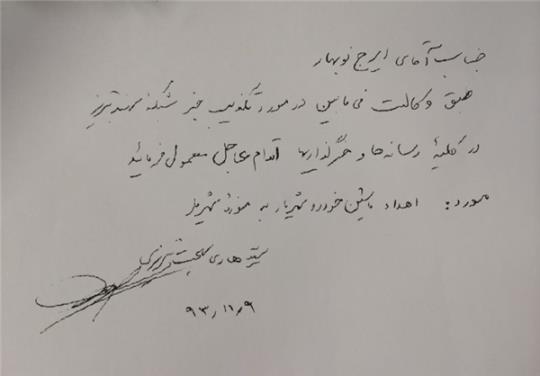 جناب آقای ایرج نوبهار
طبق وکالت فی مابین در مورد تکذیب خبر شبکه سهند تبریز
در کلیهٔ رسانه‌ها و خبرگذاریها اقدام عاجل معمول فرمائید
مورد: اهداء ماشین خودرو شهریار به موزه شهریار
سید هادی بهجت تبریزی
۹۳٫۱۱٫۹